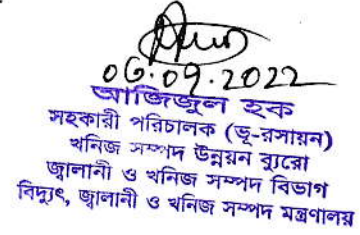 06.09.2022
আজিজুল হক
সহকারী পরিচালক (ভূ-রসায়ন)
খনিজ সম্পদ উন্নয়ন ব্যুরো
জ্বালানী ও খনিজ সম্পদ বিভাগ
বিদ্যুৎ, জ্বালানী ও খনিজ সম্পদ মন্ত্রণালয়